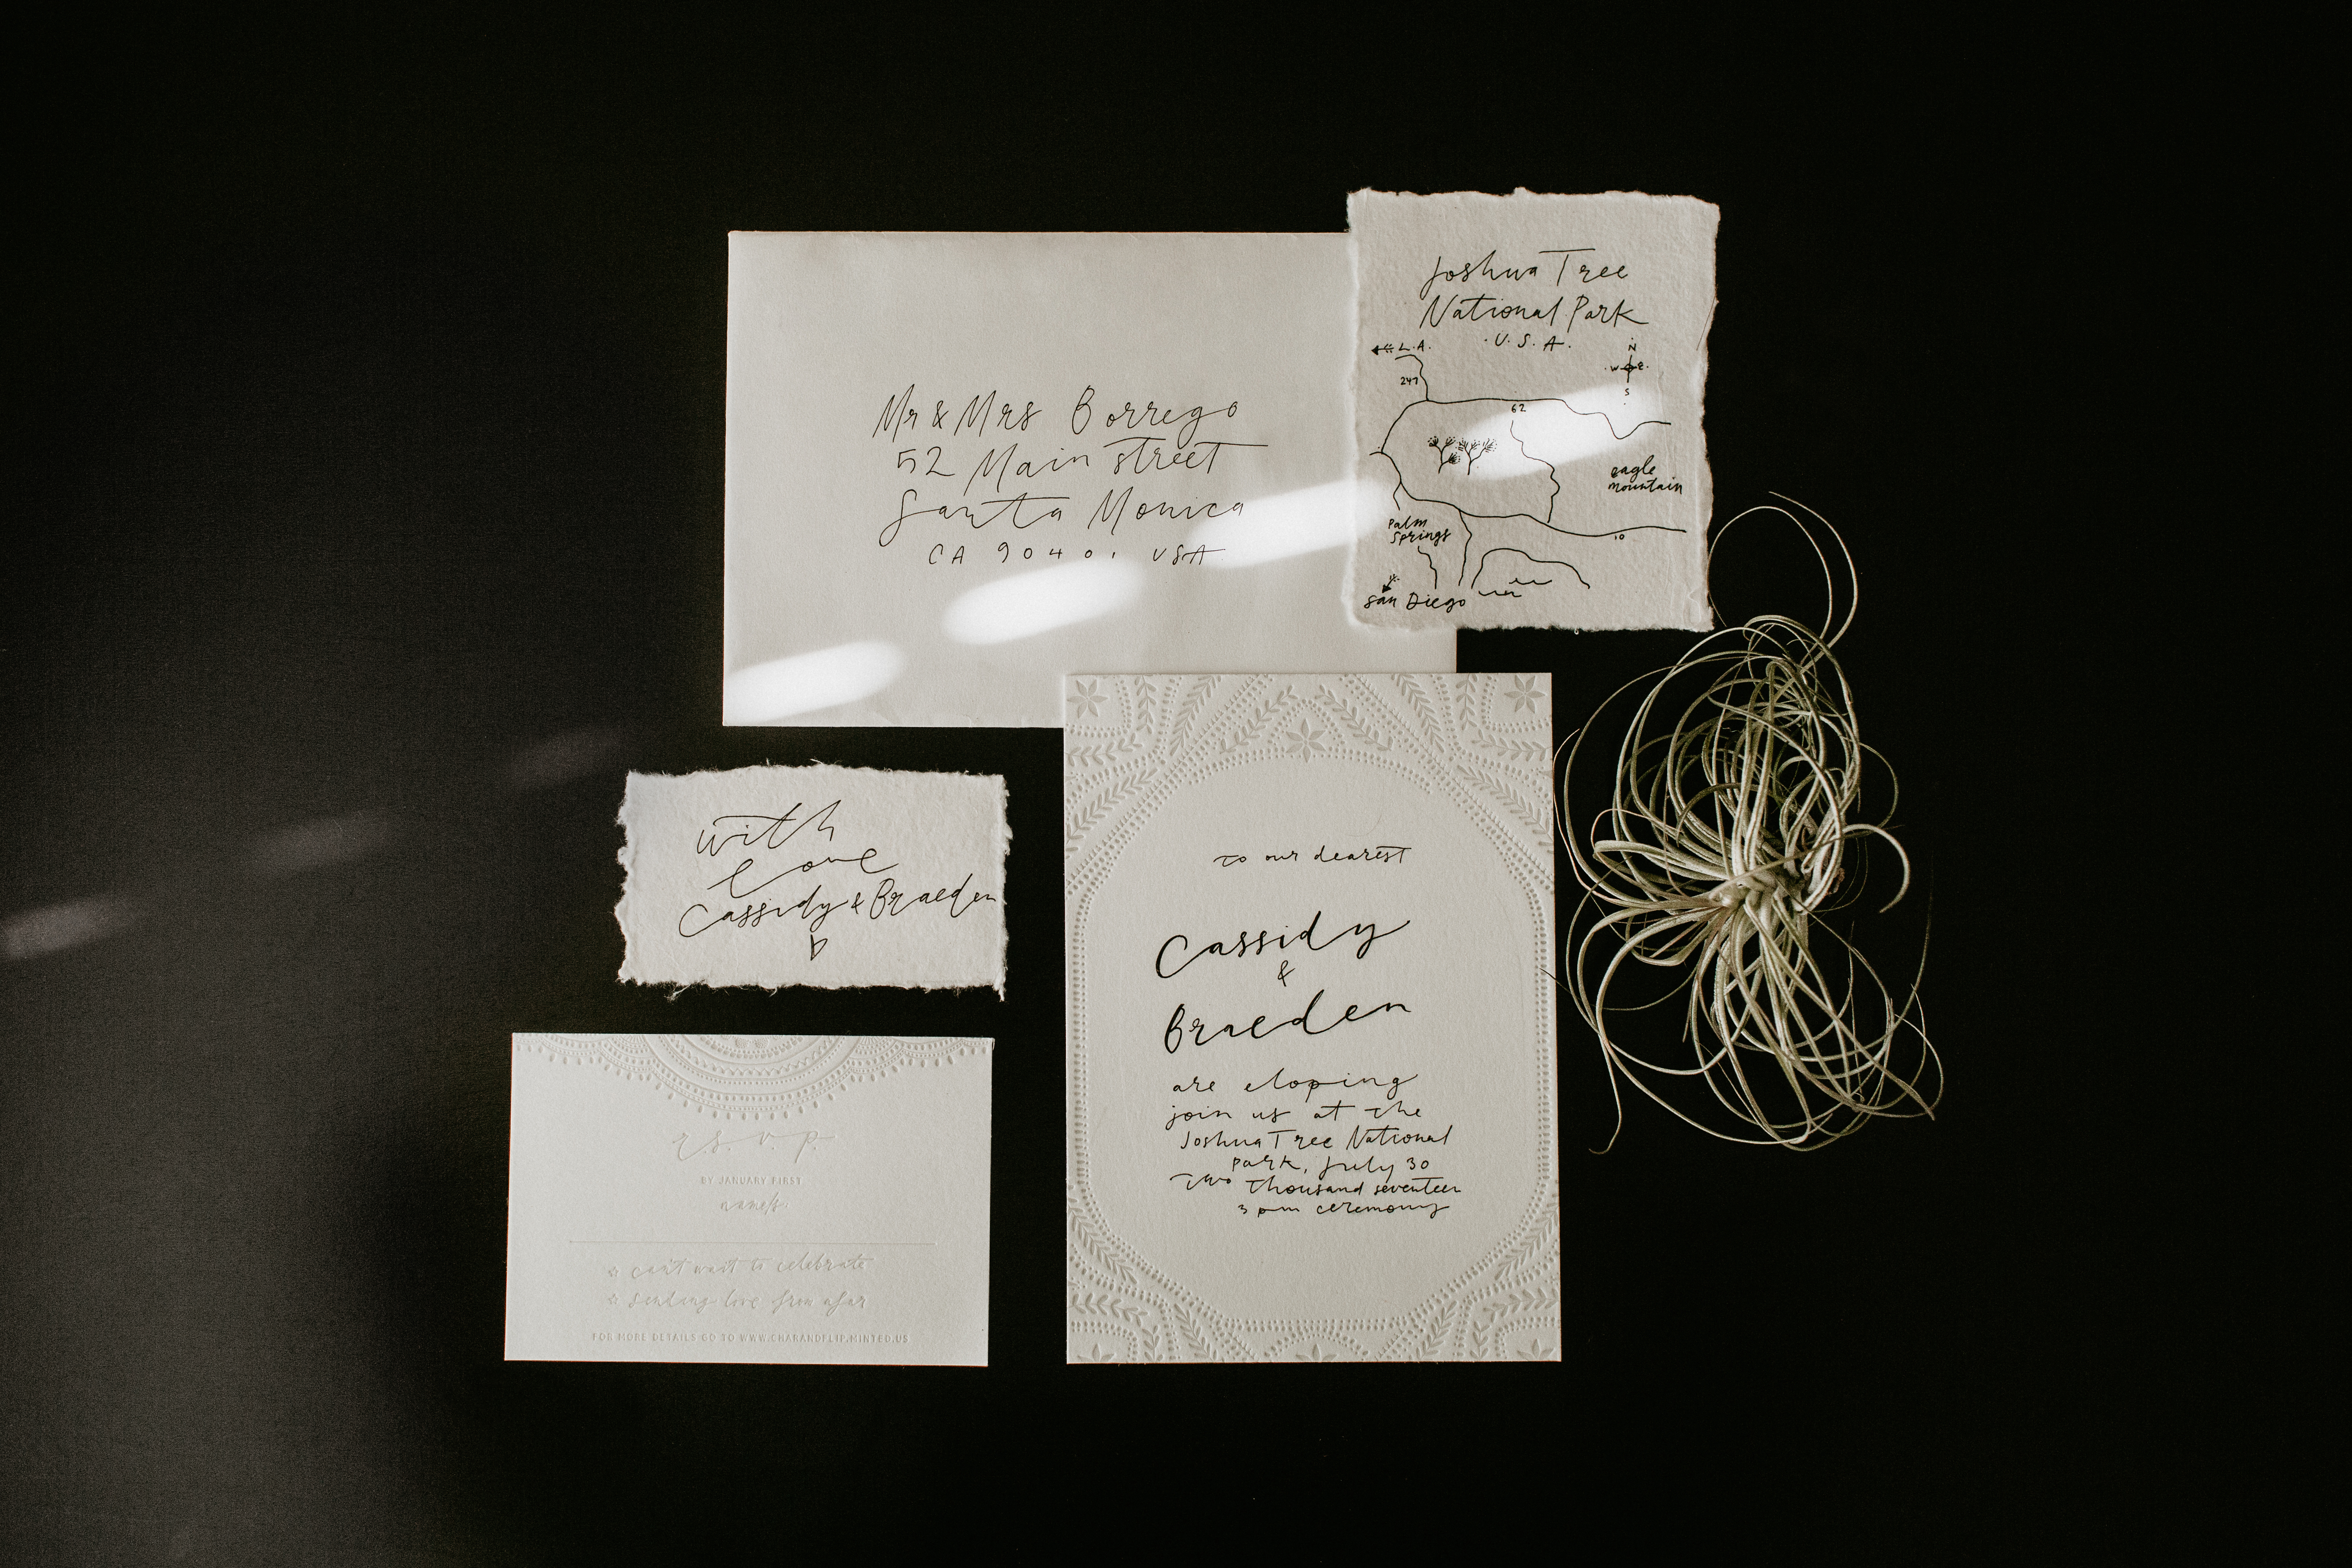 Mr & Mrs Borrego
52 Main street
Santa Monica
CA 90401 USA
Joshua Tree
National Park
L.A.
·U.S.A.
N
W E
S
247
62
eagle
mountain
palm
springs
10
San Diego
with
love
Cassidy & Braeden
to our dearest
Cassidy
&
Braeden
are eloping
join us at the
Joshua Tree National
park, July 30
two thousand seventeen
3 pm ceremony
r.s.v.p.
BY JANUARY FIRST
name/s
can't wait to celebrate
sending love from afar
FOR MORE DETAILS GO TO WWW.CHARANDFLIP.MINTED.US